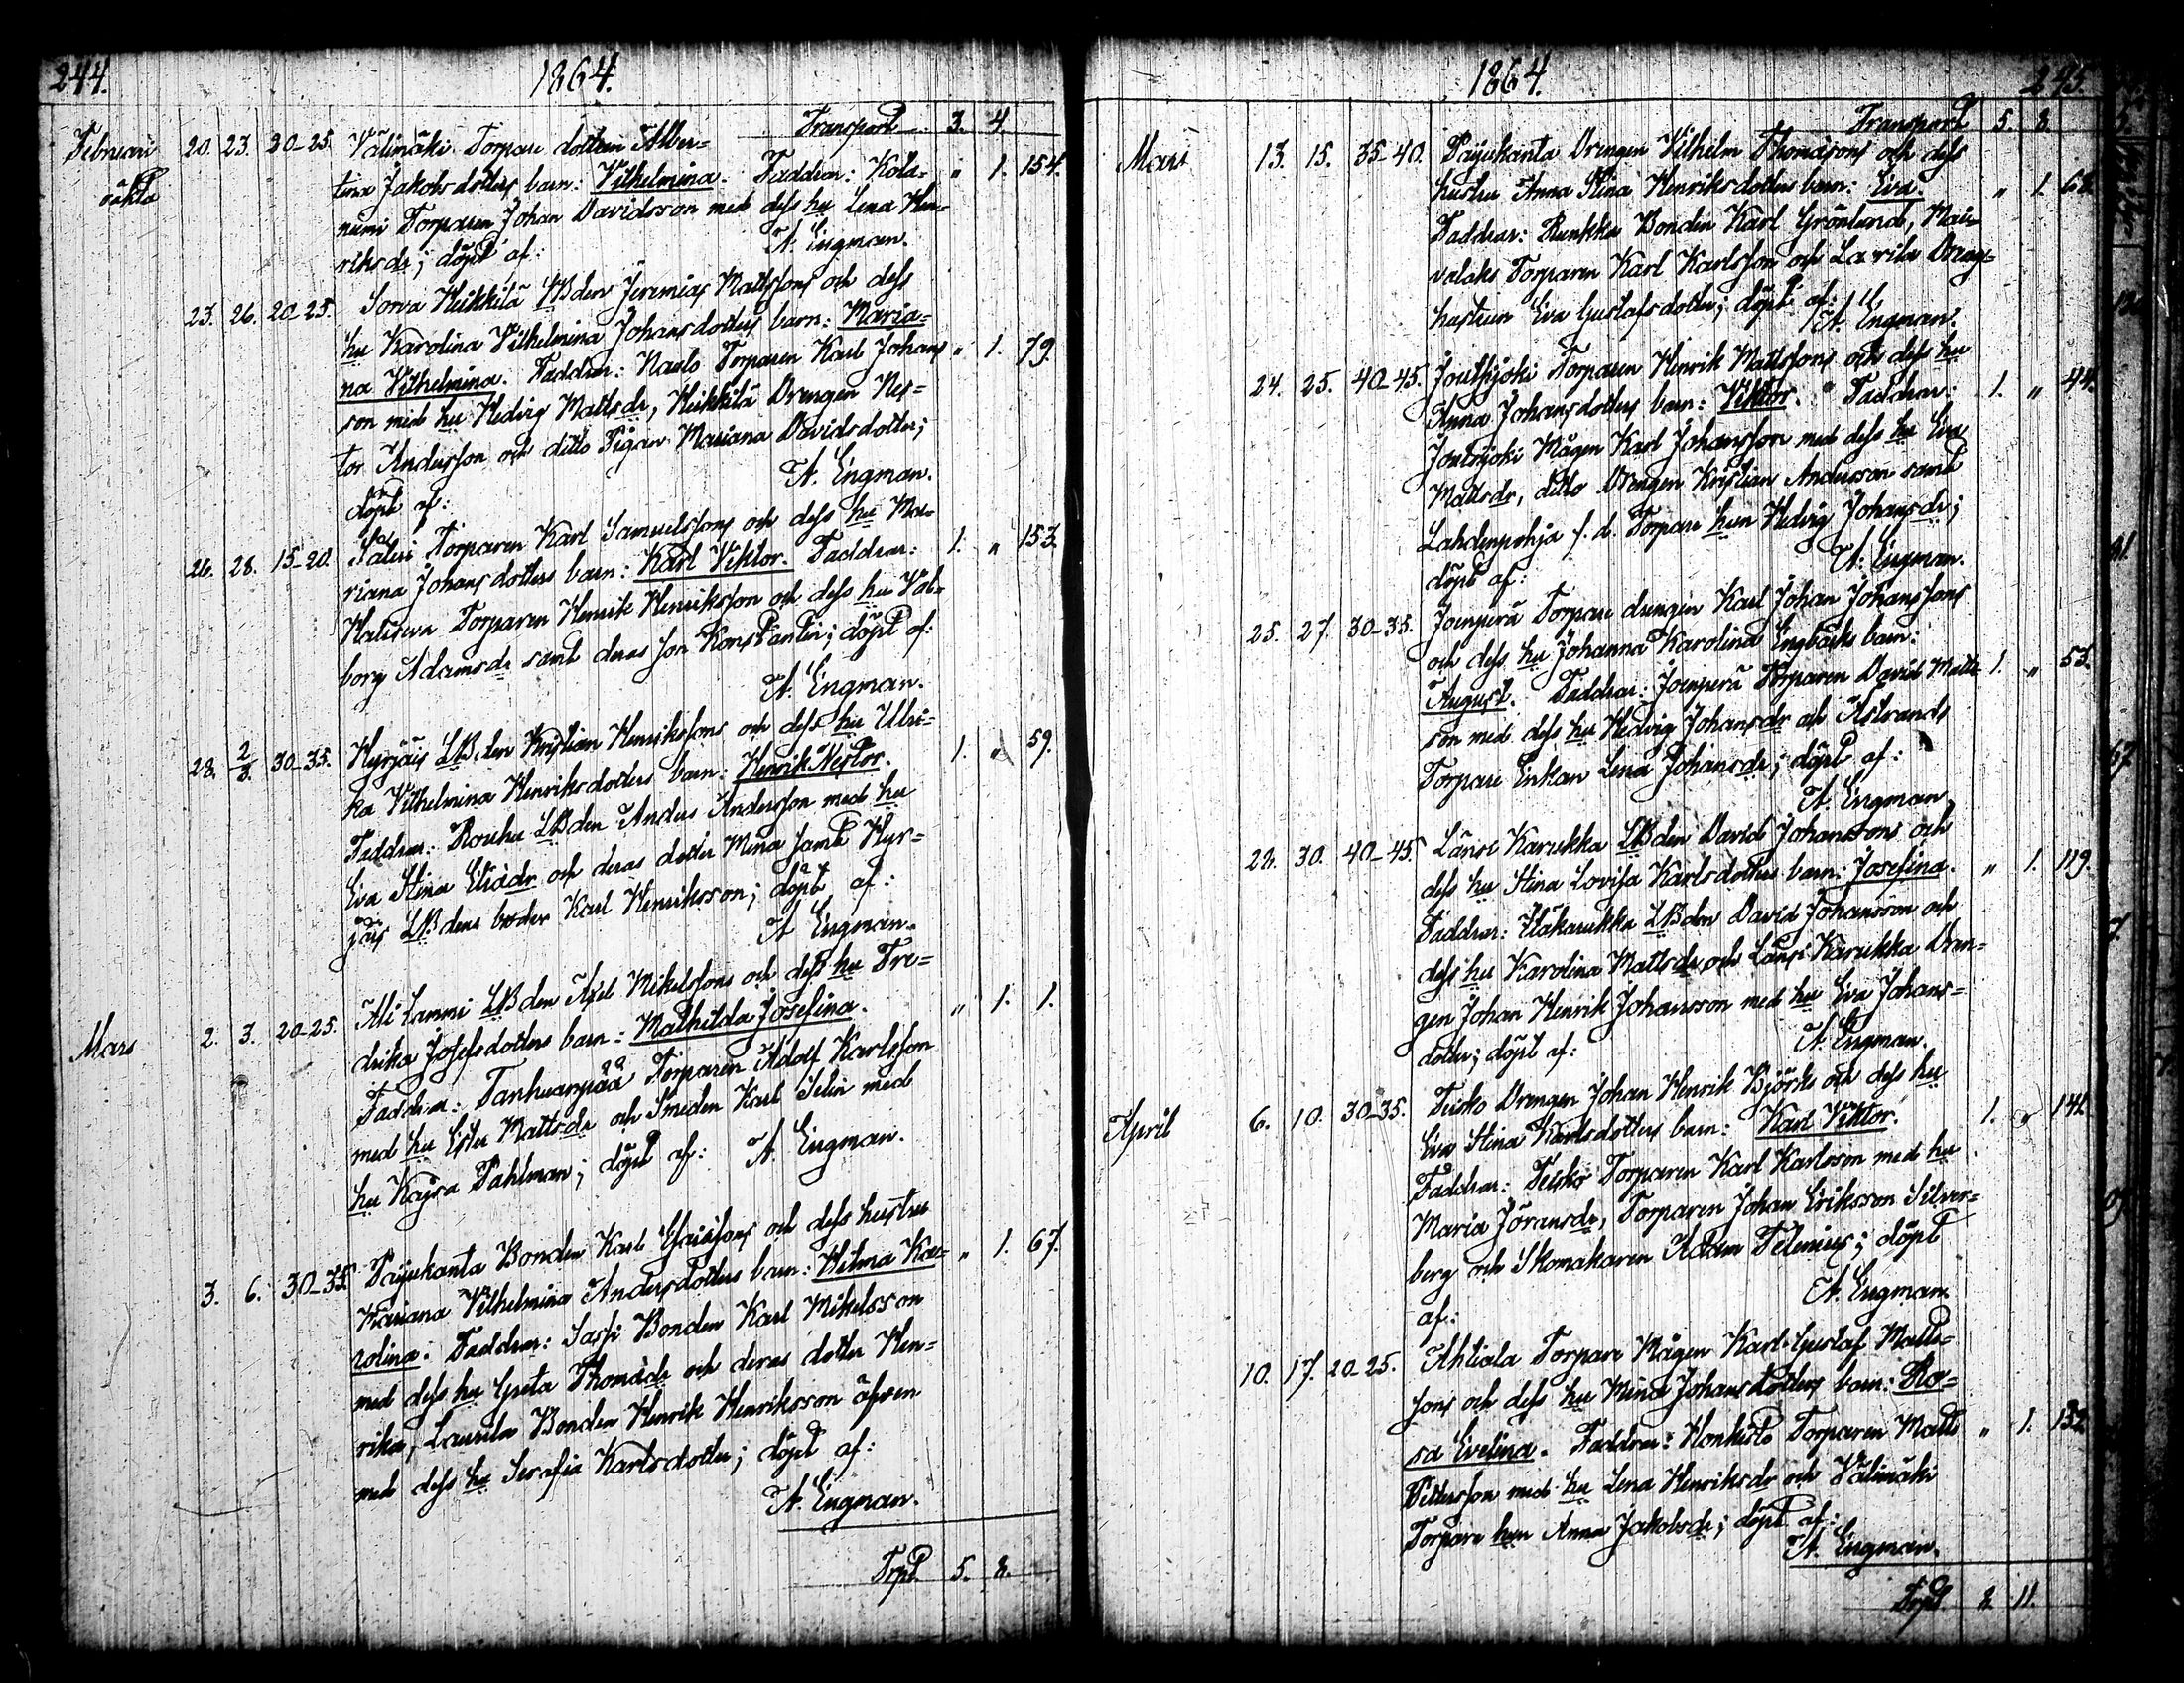 244.
1864.
Transport 3. 4.
Februari 20. 23. 20-25. Välimäki Torpare dottren Alber=
oäkta tina Jakobsdotters barn: Vilhelmina. Faddrar: Kola= " 1. 154.
niemi Torparen Johan Davidsson med dess hu Lena Hen=
riksdr; döpt af: A. Engman.
23. 26. 20-25. Sorva Heikkilä LBden Jeremias Mattssons och dess
hu Karolina Vilhelmina Johansdotters barn: Maria=
na Vilhelmina. Faddrar: Torparen Karl Johans " 1. 79.
son med hu Hedvig Mattsdr, Heikkilä Drengen Nes=
tor Andersson och ditto Pigan Mariana Davidsdotter;
döpt af: A. Engman.
26. 28. 15-20. Torparen Karl Samuelssons och dess hu Ma= 1. " 153.
riana Johansdotters barn: Karl Viktor. Faddrar:
Torparen Henrik Henriksson och dess hu Val=
borg Adamsdr samt deras son Konstantin; döpt af:
A. Engman.
28. 2/3. 30-35. Hyrjäis LBden Kristian Henrikssons och dess hu Ulri= 1. " 59.
ka Vilhelmina Henriksdotters barn: Henrik Nestor.
Faddrar: Rouhu LBden Anders Andersson med hu
Eva Stina Eliædr och deras dotter Mina samt Hyr=
jäis LBdens broder Karl Henriksson; döpt af:
A. Engman.
Mars 2. 3. 20-25. Ali Lammi LBden Axel Mikelssons och dess hu Fre= " 1. 1.
drika Josefsdotters barn: Mathilda Josefina.
Faddrar: Tanhuanpää Torparen Adolf Karlsson
med hu Ester Mattsdr och Smeden Karl Selin med
hu Kajsa Dahlman; döpt af: A. Engman.
3. 6. 30-35. Paijukanta Bonden Karl Esaiassons och dess hustru
Mariana Vilhelmina Andersdotters barn: Hilma Ka= " 1. 67.
rolina. Faddrar: Sassi Bonden Karl Mikelsson
med dess hu Greta Thomædr och deras dotter Hen=
rika, Laurila Bonden Henrik Henriksson äfven
med dess hu Serafia Karlsdotter; döpt af:
A. Engman.
Trpt. 5. 8.
1864.
245.
Transport 5. 8.
Mars 13. 15. 35-40. Paijukanta Drengen Vilhelm Thomæsons och dess
hustru Anna Stina Henriksdotters barn: Eva. " 1. 68.
Faddrar: Runkka Bonden Karl Grönlund,
Torparen Karl Karlsson och Laurila Dreng=
hustrun Eva Gustafsdotter; döpt af:
A. Engman.
24. 25. 40-45. Joutsijoki Torparen Henrik Mattssons och dess hu
Anna Johansdotters barn: Viktor. Faddrar: 1. " 44.
Joutsijoki Mågen Karl Johansson med dess hu Eva
Mattsdr, ditto Drengen Kristian Andersson samt
Lahdenpohja f. d. Torpare hun Hedvig Johansdr;
döpt af: A. Engman.
25. 27. 30-35. Joenperä Torpare drengen Karl Johan Johanssons
och dess hu Johanna Karolina Engbäcks barn:
August. Faddrar: Joenperä Torparen David Matts= 1. " 53.
son med dess hu Hedvig Johansdr och Åstrands
Torpare Enkan Lena Johansdr; döpt af:
A. Engman.
28. 30. 40-45. Länsi Karukka LBden David Johanssons och
dess hu Stina Lovisa Karlsdotters barn: Josefina. " 1. 119.
Faddrar: Yläkarukka LBden David Johansson och
dess hu Karolina Mattsdr och Länsi Karukka Dren=
gen Johan Henrik Johansson med hu Eva Johans=
dotter; döpt af: A. Engman.
April 6. 10. 30-35. Teisko Drengen Johan Henrik Björks och dess hu
Eva Stina Karlsdotters barn: Karl Viktor. 1. " 141.
Faddrar: Teisko Torparen Karl Karlsson med hu
Maria Jöransdr, Torparen Johan Eriksson Silver=
berg och Skomakaren Adam Telenius; döpt
af: A. Engman.
10. 17. 20-25. Ahtiala Torpare Mågen Karl Gustaf Matts=
sons och dess hu Mina Johansdotters barn: Ro=
sa Evelina. Faddrar: Honkisto Torparen Matts " 1. 132.
Pettersson med hu Lena Henriksdr och Välimäki
Torpare hun Anna Jakobsdr; döpt af:
A. Engman.
Trpt. 8. 11.